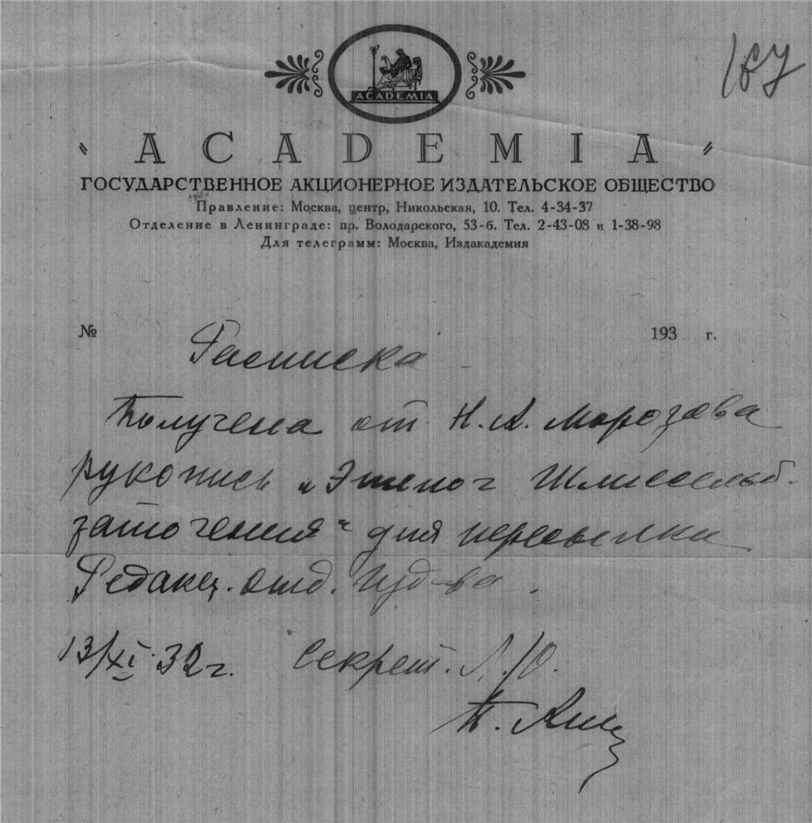 167
ACADEMIA
„ ACADEMIA „
ГОСУДАРСТВЕННОЕ АКЦИОНЕРНОЕ ИЗДАТЕЛЬСКОЕ ОБЩЕСТВО
Правление: Москва, центр, Никольская, 10. Тел. 4-34-37
Отделение в Ленинграде: пр. Володарского, 53-б. Тел. 2-43-08 и 1-38-98
Для телеграмм: Москва, Издакадемия
№ 193 г.
Расписка
Получена от Н. А. Морозова
рукопись „Эпилог Шлиссельб.
заточения“ для пересылки
Редакц. отд. Изд-ва.
13/XI 32 г. Секрет. Л. О.